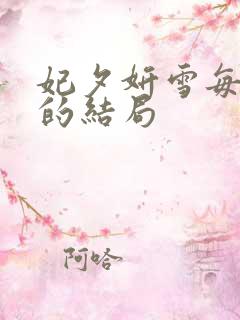 妃夕妍雪每
的結局
阿哈